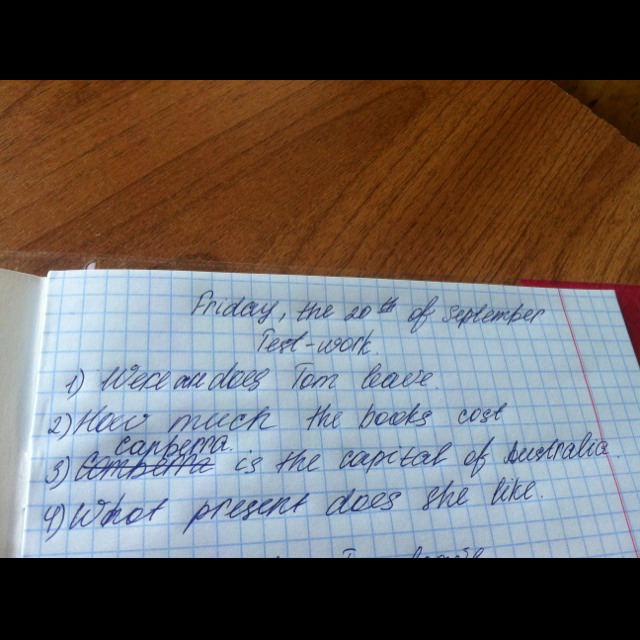 Friday, the 20th of September
Test-work.
1) Were an does Tom leave.
2) How much the books cost
canberra.
3) is the capital of Australia.
4) What present does she like.